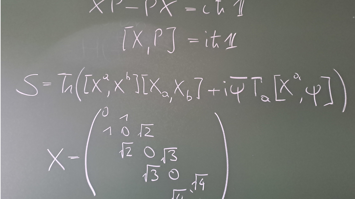 XP-PX=iħ𝟙
[X,P]=iħ𝟙
S=Tr([Xᵃ,Xᵇ][Xₐ,X_b]+iψ̄Γₐ[Xᵃ,ψ])
X=(
0 1
1 0 √2
√2 0 √3
√3 0 √4
√4
)